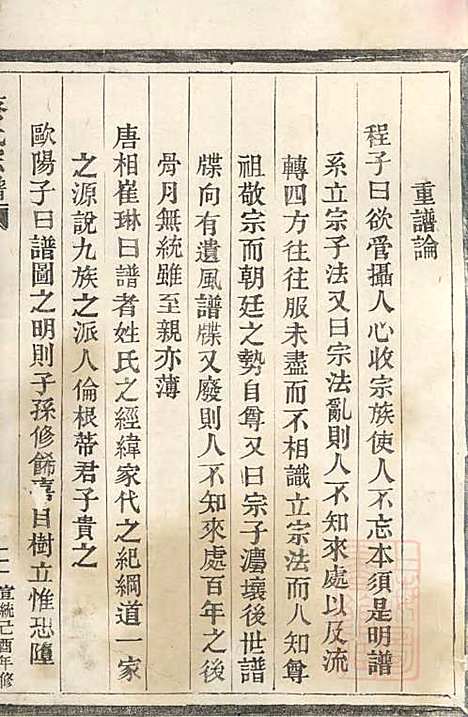 重譜論
程子曰欲管攝人心收宗族使人不忘本須是明譜
系立宗子法又曰宗法亂則人不知來處以及流
轉四方往往服未盡而不相識立宗法而人知尊
祖敬宗而朝廷之勢自尊又曰宗子灋壞後世譜
牒向有遺風譜牒又廢則人不知來處百年之後
骨月無統雖至親亦薄
唐相崔琳曰譜者姓氏之經緯家代之紀綱道一家
之源說九族之派人倫根蒂君子貴之
歐陽子曰譜圖之明則子孫修餙喜自樹立惟恐墮
氏宗譜
宣統己酉年修